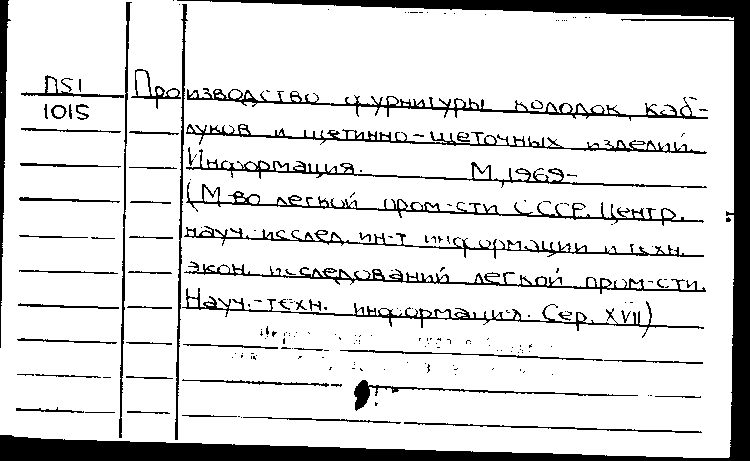 П51
1015
Производство фурнитуры колодок, каб-
луков и щетинно-щеточных изделий.
Информация. М., 1969-
(М-во легкой пром-сти СССР. Центр.
науч.-исслед. ин-т информации и техн.
экон. исследований легкой пром-сти.
Науч.-техн. информация. Сер. XVII)